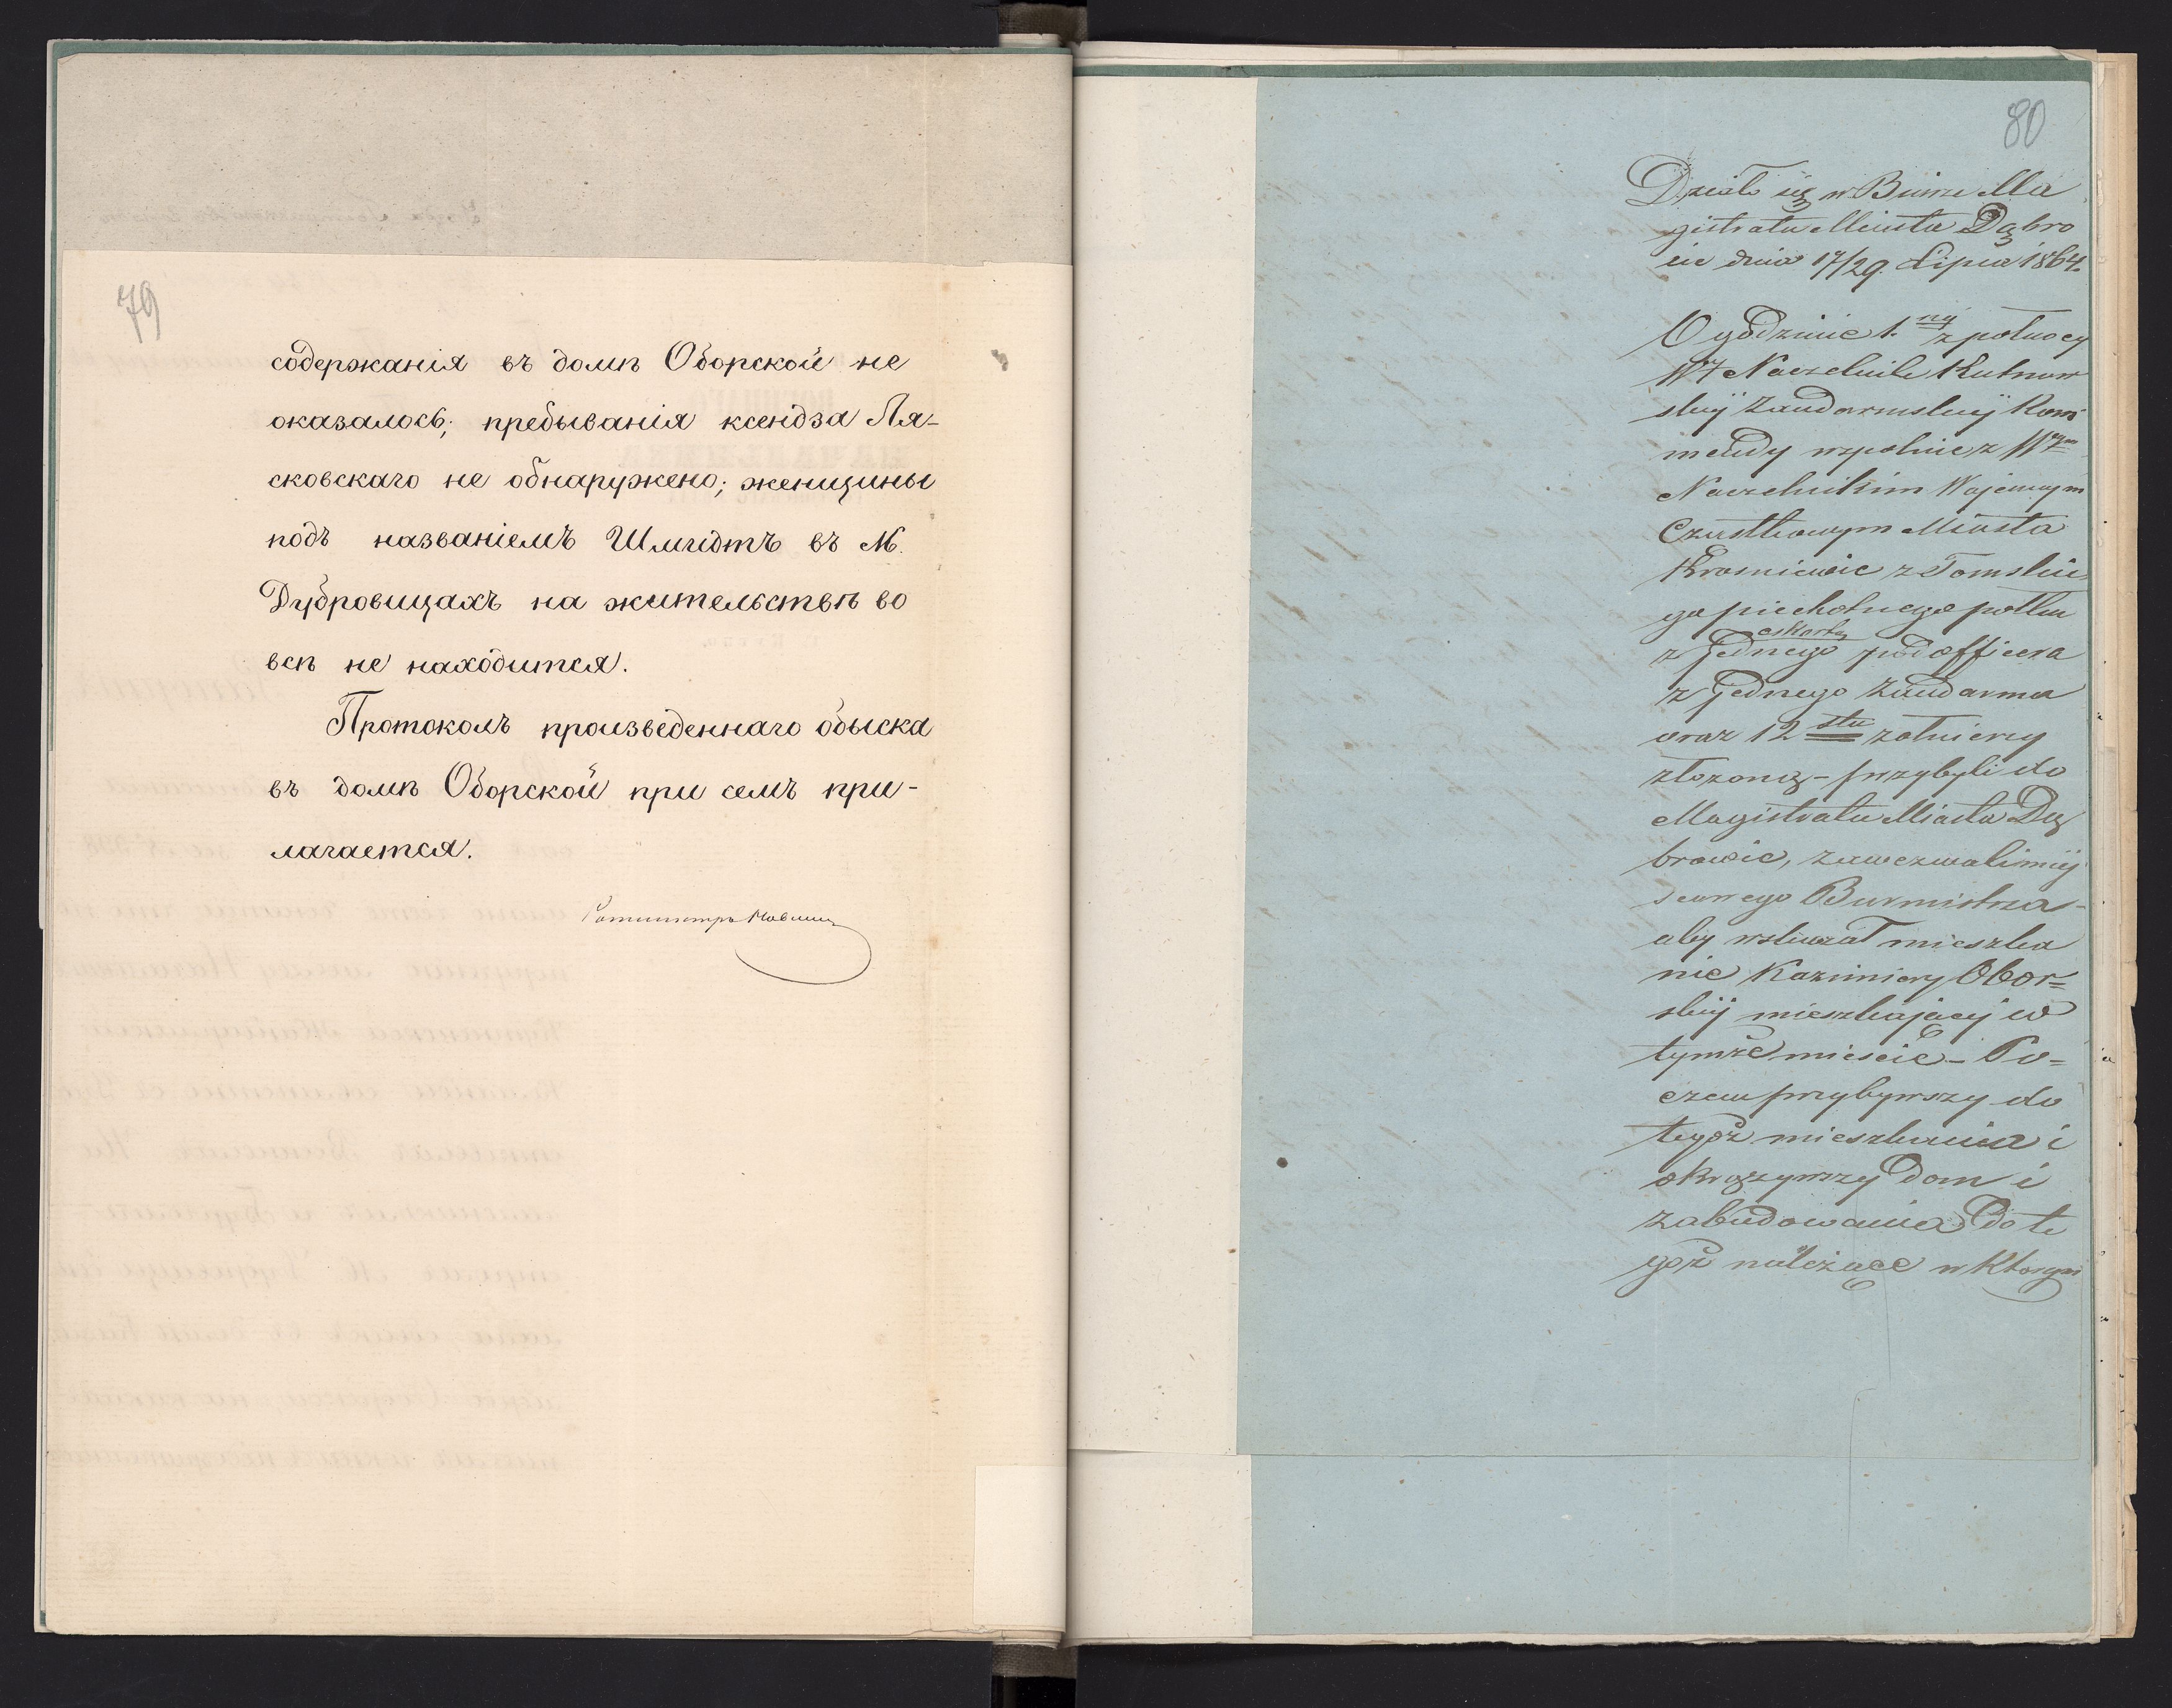 79
содержанія въ домѣ Оборской не
оказалось; пребыванія ксендза Ля-
сковскаго не обнаружено; женщины
подъ названіемъ Шмидтъ въ М.
Дубровицахъ на жительствѣ во
все не находится.
Протоколъ произведеннаго обыска
въ домѣ Оборской при семъ при-
лагается.
Ротмистръ
80
Działo się w Biurze Ma
gistratu Miasta Dąbro
wic dnia 17/29. Lipca 1864.
O godzinie 1.ny z pułnocy
W Naczelnik Kutnow
skiÿ Żandarmskiÿ Kom
mendy wzpolnie z
Naczelnikim Wojennym
Czastkowym Miasta
Krosniewic z Tomskie
go piechotnego połku
eskortą
z Jednego podofficera
z Jednego Żandarma
oraz 12 stu żołnierzy
złozoną - przybyli do
Magistratu Miasta Dą
browic, zawezwali miej
scowego Burmistrza -
aby wskazał mieszka
nie Kazimiery Obor=
skiÿ mieszkającej w
tymże mieście - Po=
czem przybywszy do
tegoż mieszkania i
okrązywszy Dom i
zabudowania do te
goż należące w Ktorym